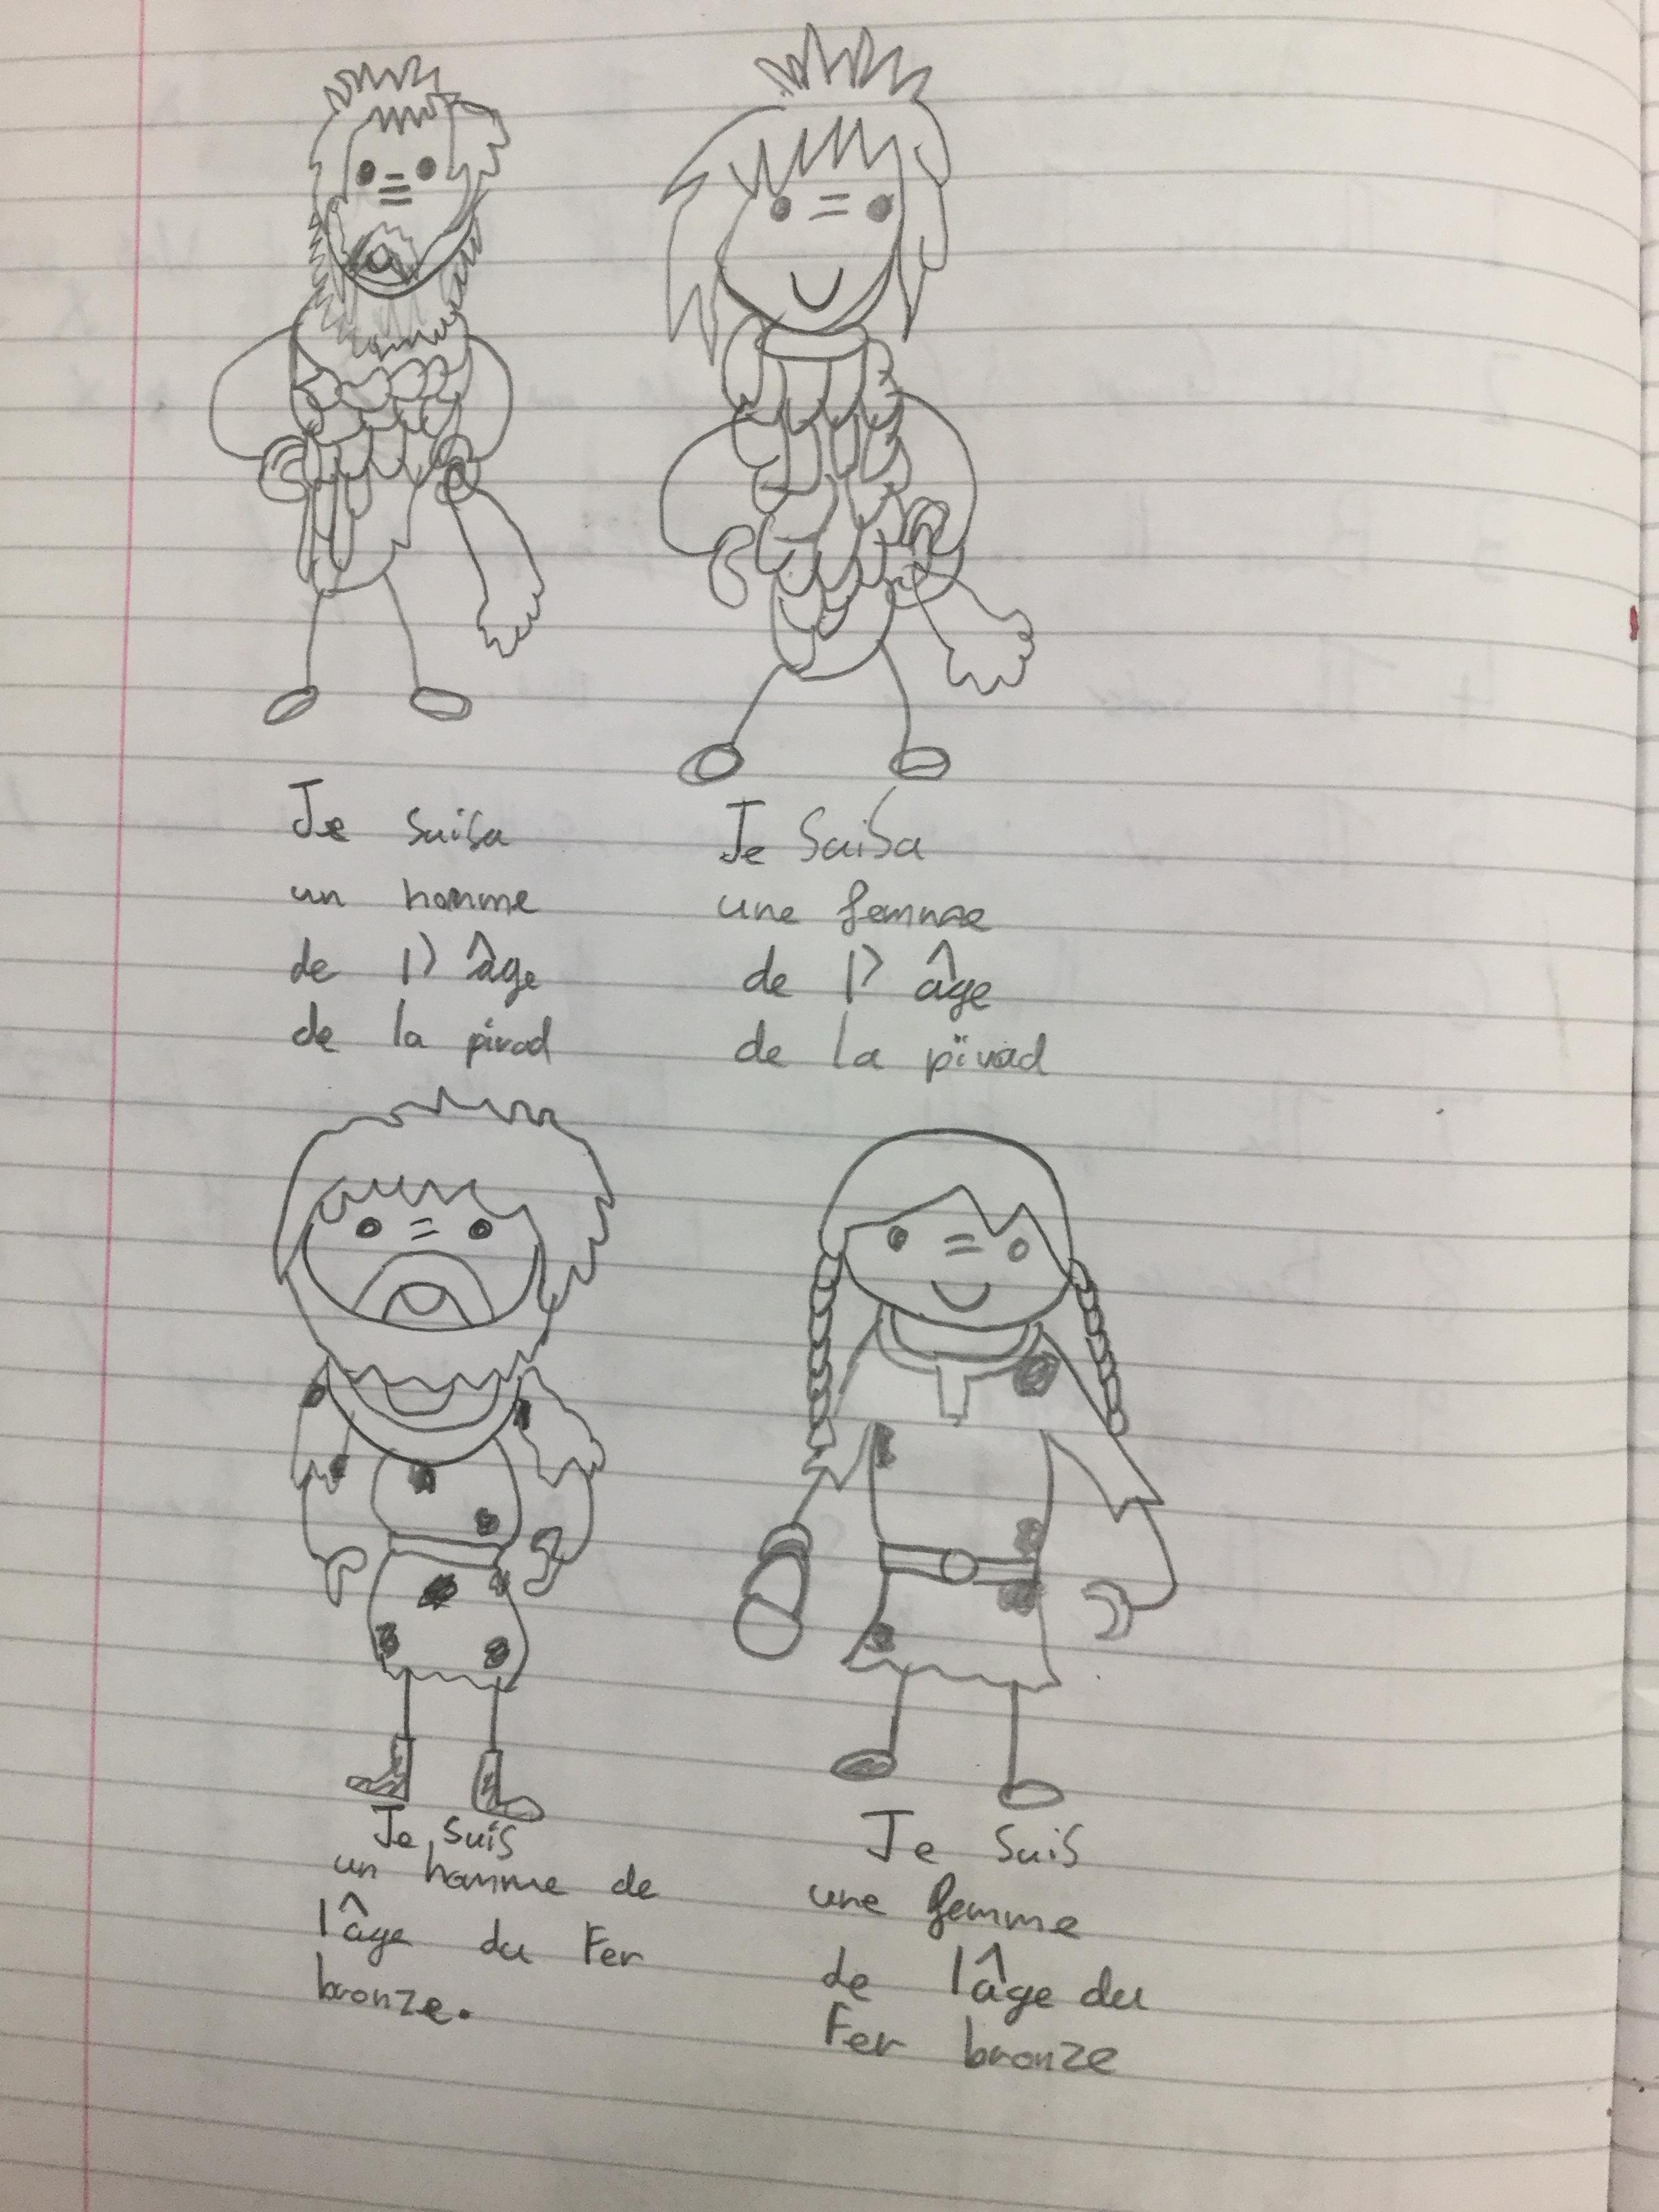 Je suisa
un homme
de l' âge
de la pivad
Je Suisa
une femme
de l' âge
de la pïvad
Je suis
un homme de
l'âge du Fer
bronze.
Je suis
une femme
de l'âge du
Fer bronze